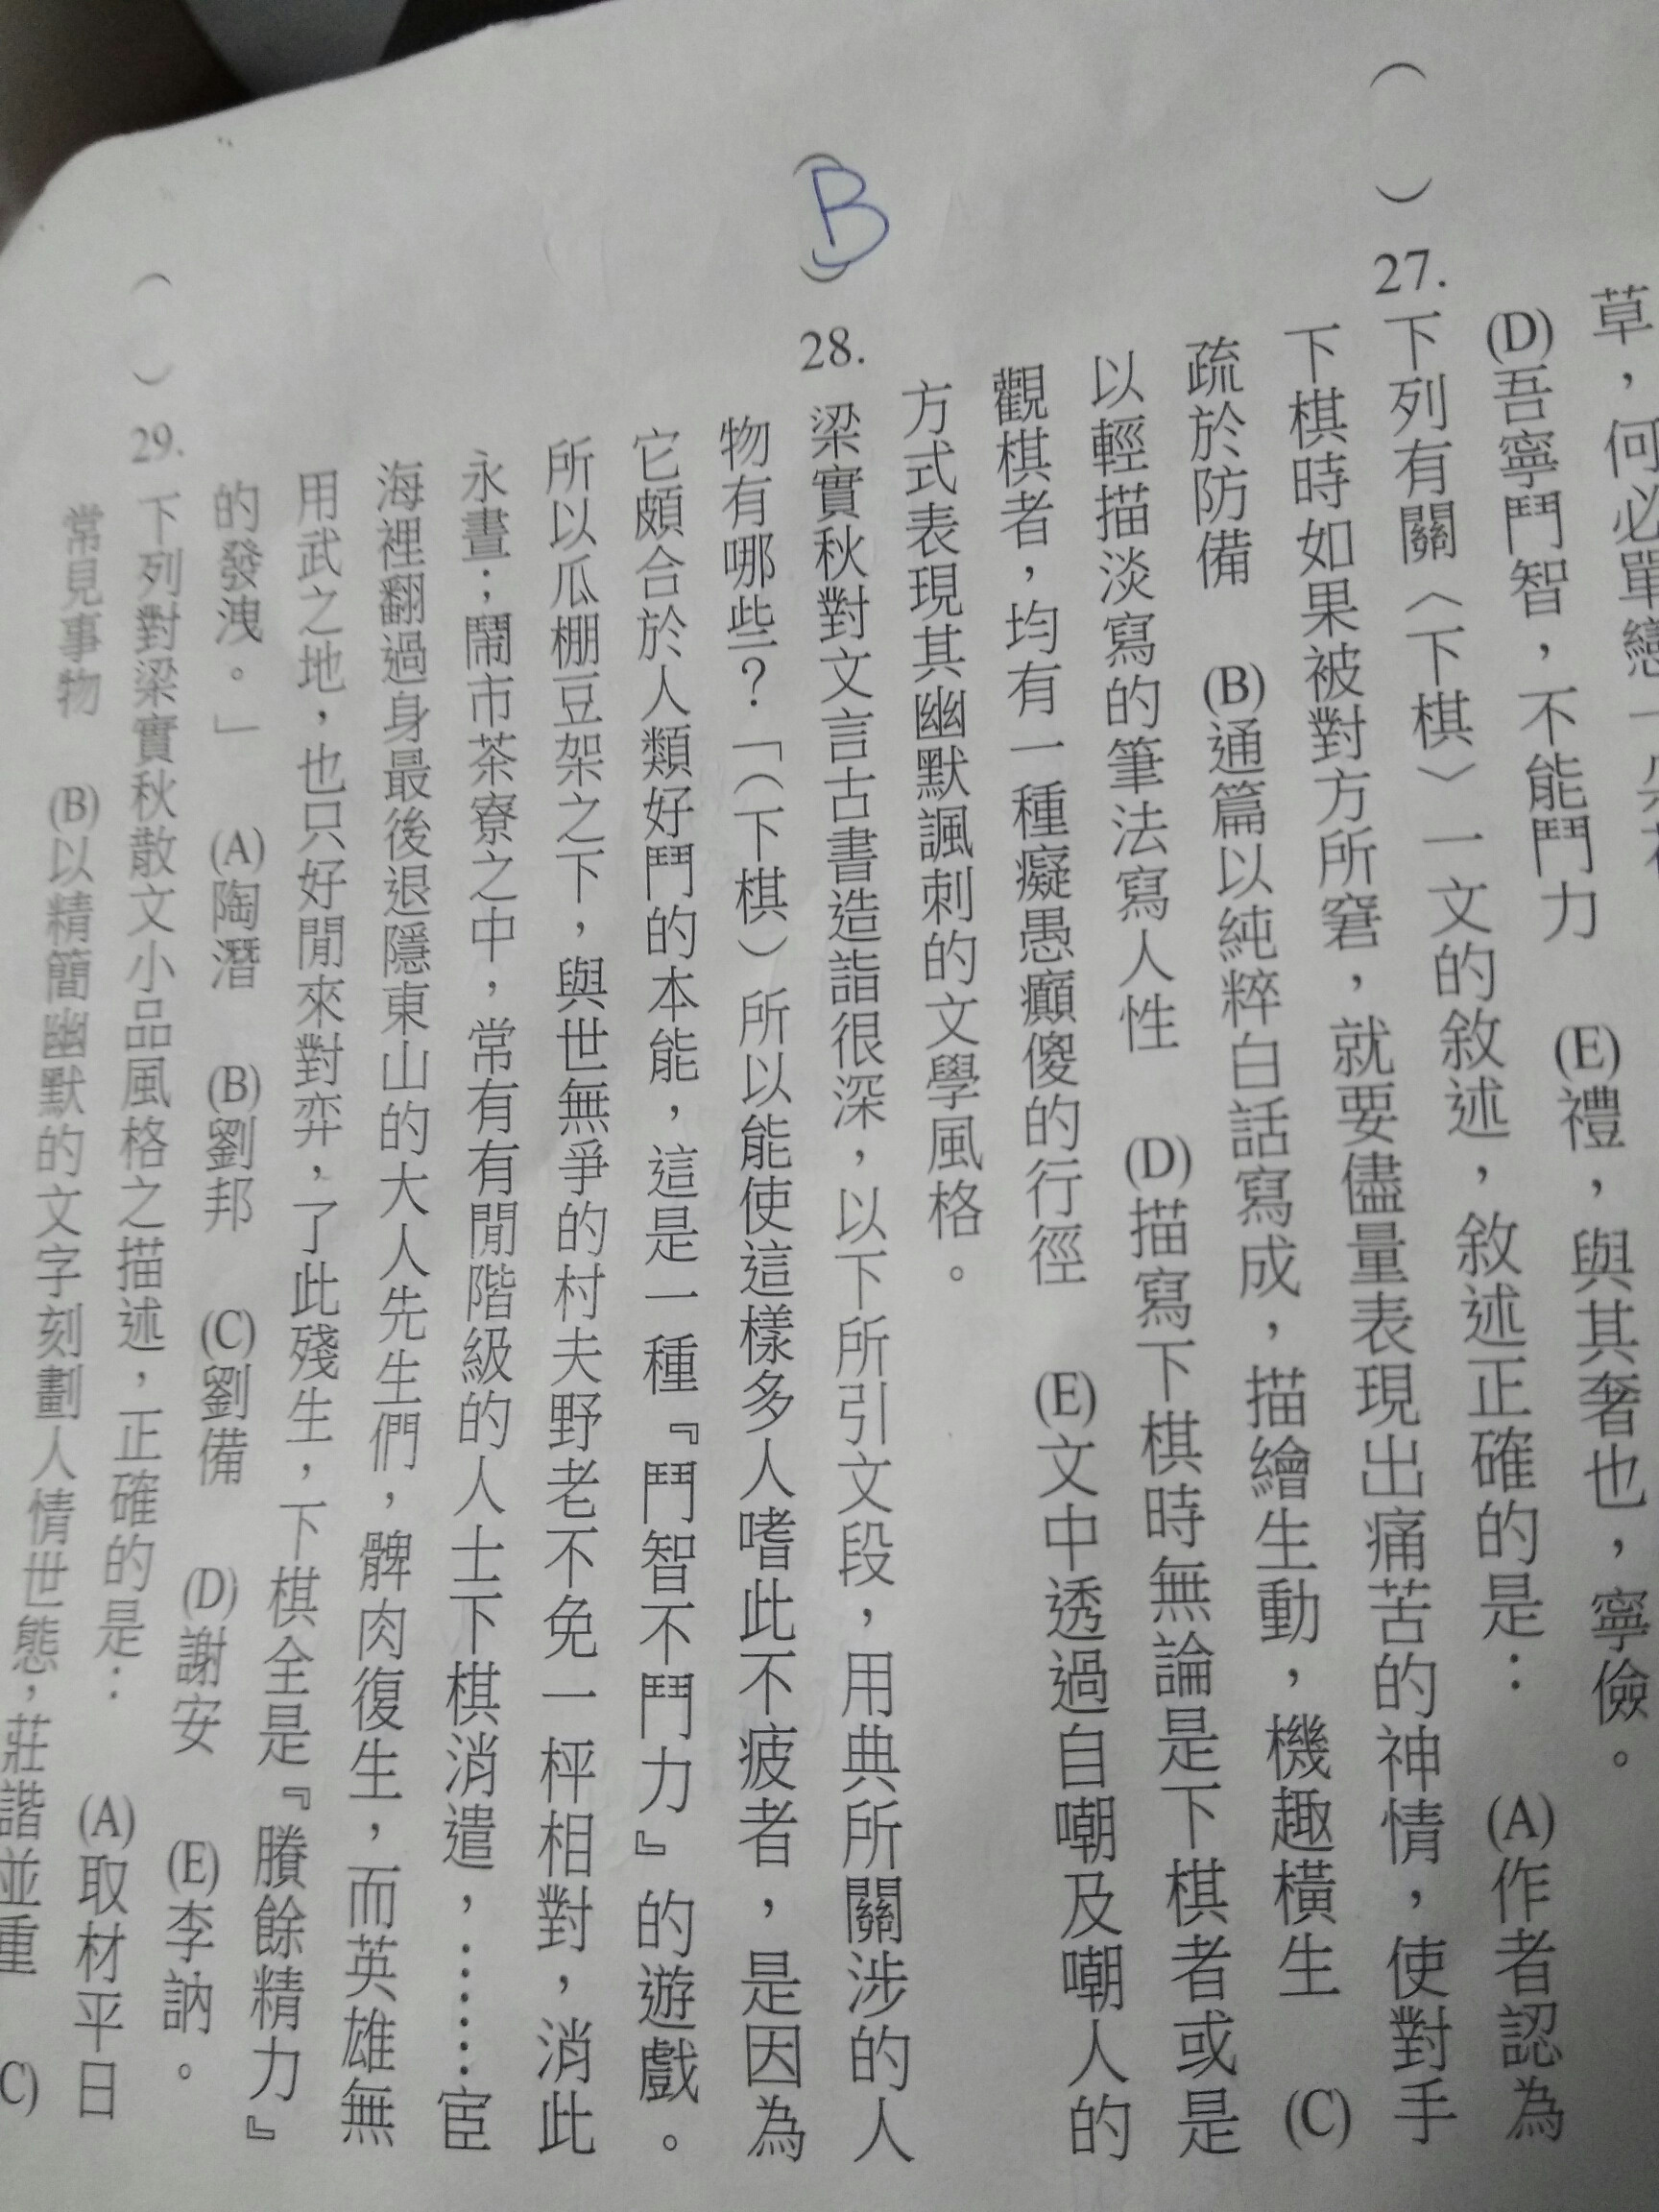 草，何必單戀一
(D)吾寧鬥智，不能鬥力　(E)禮，與其奢也，寧儉。
（　）27.下列有關〈下棋〉一文的敘述，敘述正確的是：　(A)作者認為
下棋時如果被對方所窘，就要儘量表現出痛苦的神情，使對手
疏於防備　(B)通篇以純粹白話寫成，描繪生動，機趣橫生　(C)
以輕描淡寫的筆法寫人性　(D)描寫下棋時無論是下棋者或是
觀棋者，均有一種癡愚癲傻的行徑　(E)文中透過自嘲及嘲人的
方式表現其幽默諷刺的文學風格。
（B）28.梁實秋對文言古書造詣很深，以下所引文段，用典所關涉的人
物有哪些？「（下棋）所以能使這樣多人嗜此不疲者，是因為
它頗合於人類好鬥的本能，這是一種『鬥智不鬥力』的遊戲。
所以瓜棚豆架之下，與世無爭的村夫野老不免一枰相對，消此
永晝；鬧市茶寮之中，常有有閒階級的人士下棋消遣，……宦
海裡翻過身最後退隱東山的大人先生們，髀肉復生，而英雄無
用武之地，也只好閒來對弈，了此殘生，下棋全是『賸餘精力』
的發洩。」　(A)陶潛　(B)劉邦　(C)劉備　(D)謝安　(E)李訥。
（　）29.下列對梁實秋散文小品風格之描述，正確的是：　(A)取材平日
常見事物　(B)以精簡幽默的文字刻劃人情世態，莊諧並重　C)